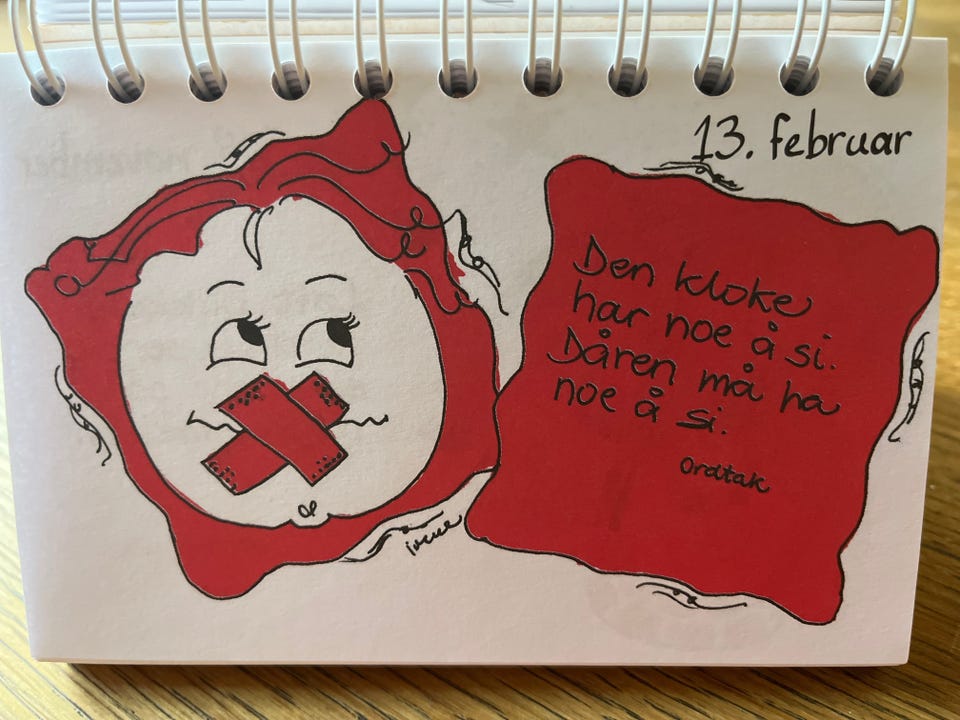 13. februar
Den kloke
har noe å si.
Dåren må ha
noe å si.
Ordtak